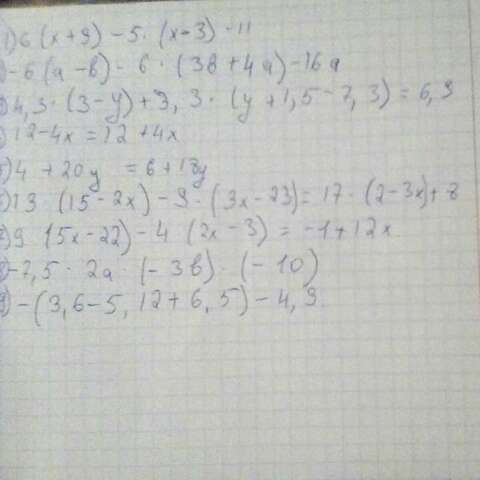 1) 6 (x+9) - 5 · (x-3) - 11
2) -6 (a - в) - 6 · (3в + 4a) - 16a
3) 4,3 · (3-y) + 3, 3 · (y + 1,5 - 7, 3) = 6,9
4) 12 - 4x = 12 + 4x
5) 4 + 20y = 6 + 18y
6) 13 (15 - 2x) - 9 · (3x - 23) = 17 · (2 - 3x) + 8
7) 9 (5x - 22) - 4 (2x - 3) = -1 + 12x
8) -7,5 · 2a · (- 3в) · (- 10)
9) - (3,6 - 5, 12 + 6, 5) - 4, 9.